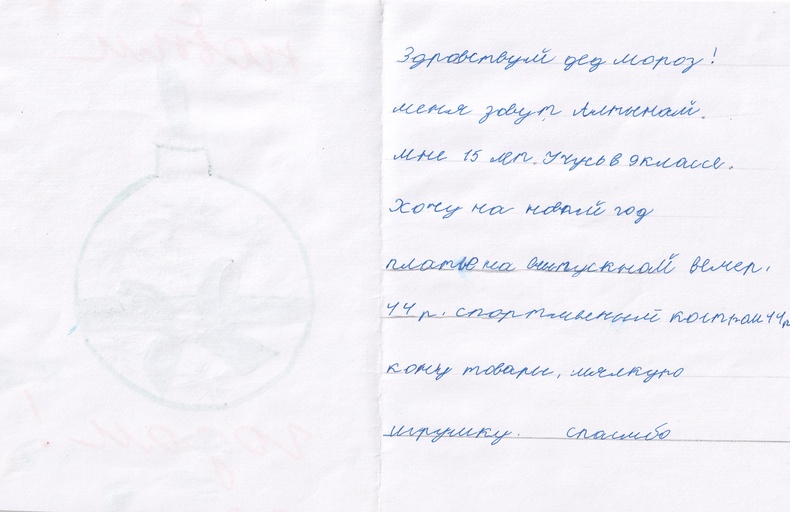 Здравствуй дед мороз!
меня зовут Алтынай.
мне 15 лет. Учусь в 9 классе.
Хочу на новый год
платье на выпускной вечер.
44 р. спортивный костюм 44р
концтовары, мялкую
игрушку. спасибо